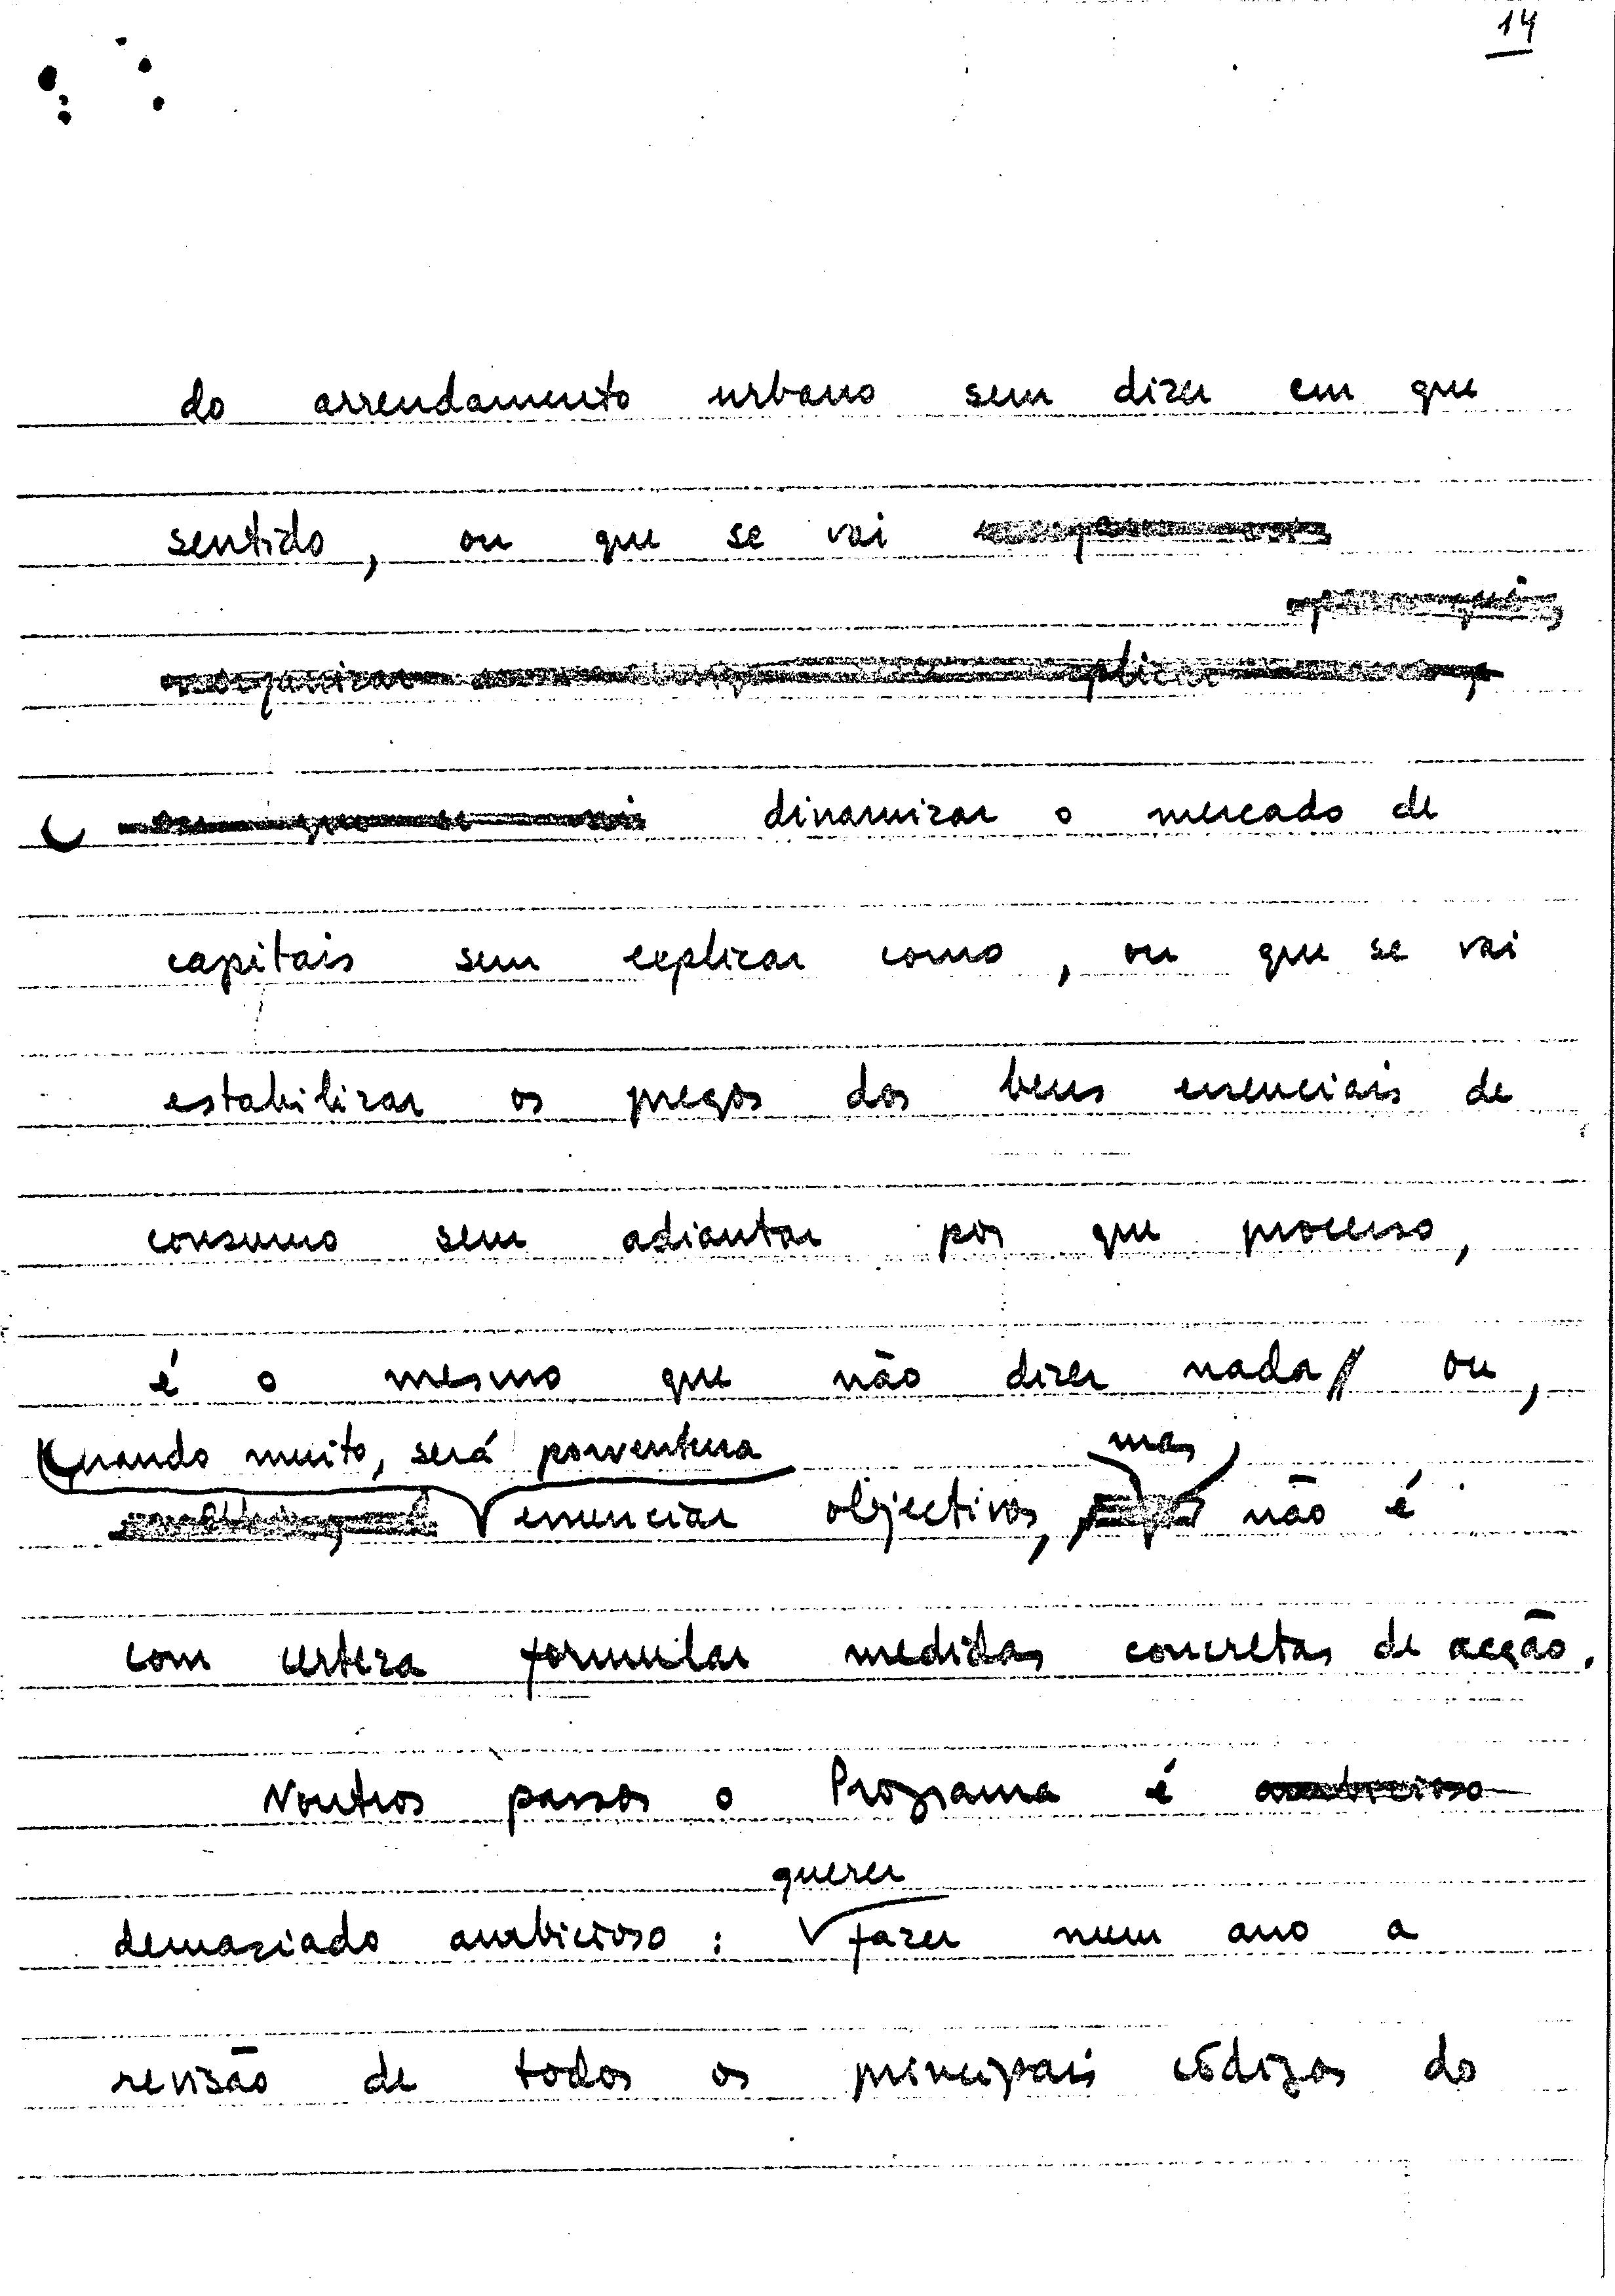 14
do arrendamento urbano sem dizer em que
sentido, ou que se vai
dinamizar o mercado de
capitais sem explicar como, ou que se vai
estabilizar os preços dos bens essenciais de
consumo sem adiantar por que processo,
é o mesmo que não dizer nada ou,
quando muito, será porventura mas
enunciar objectivos, não é
com certeza formular medidas concretas de acção.
Noutros passos o Programa é ambicioso
querer
demasiado ambicioso: fazer num ano a
revisão de todos os principais códigos do